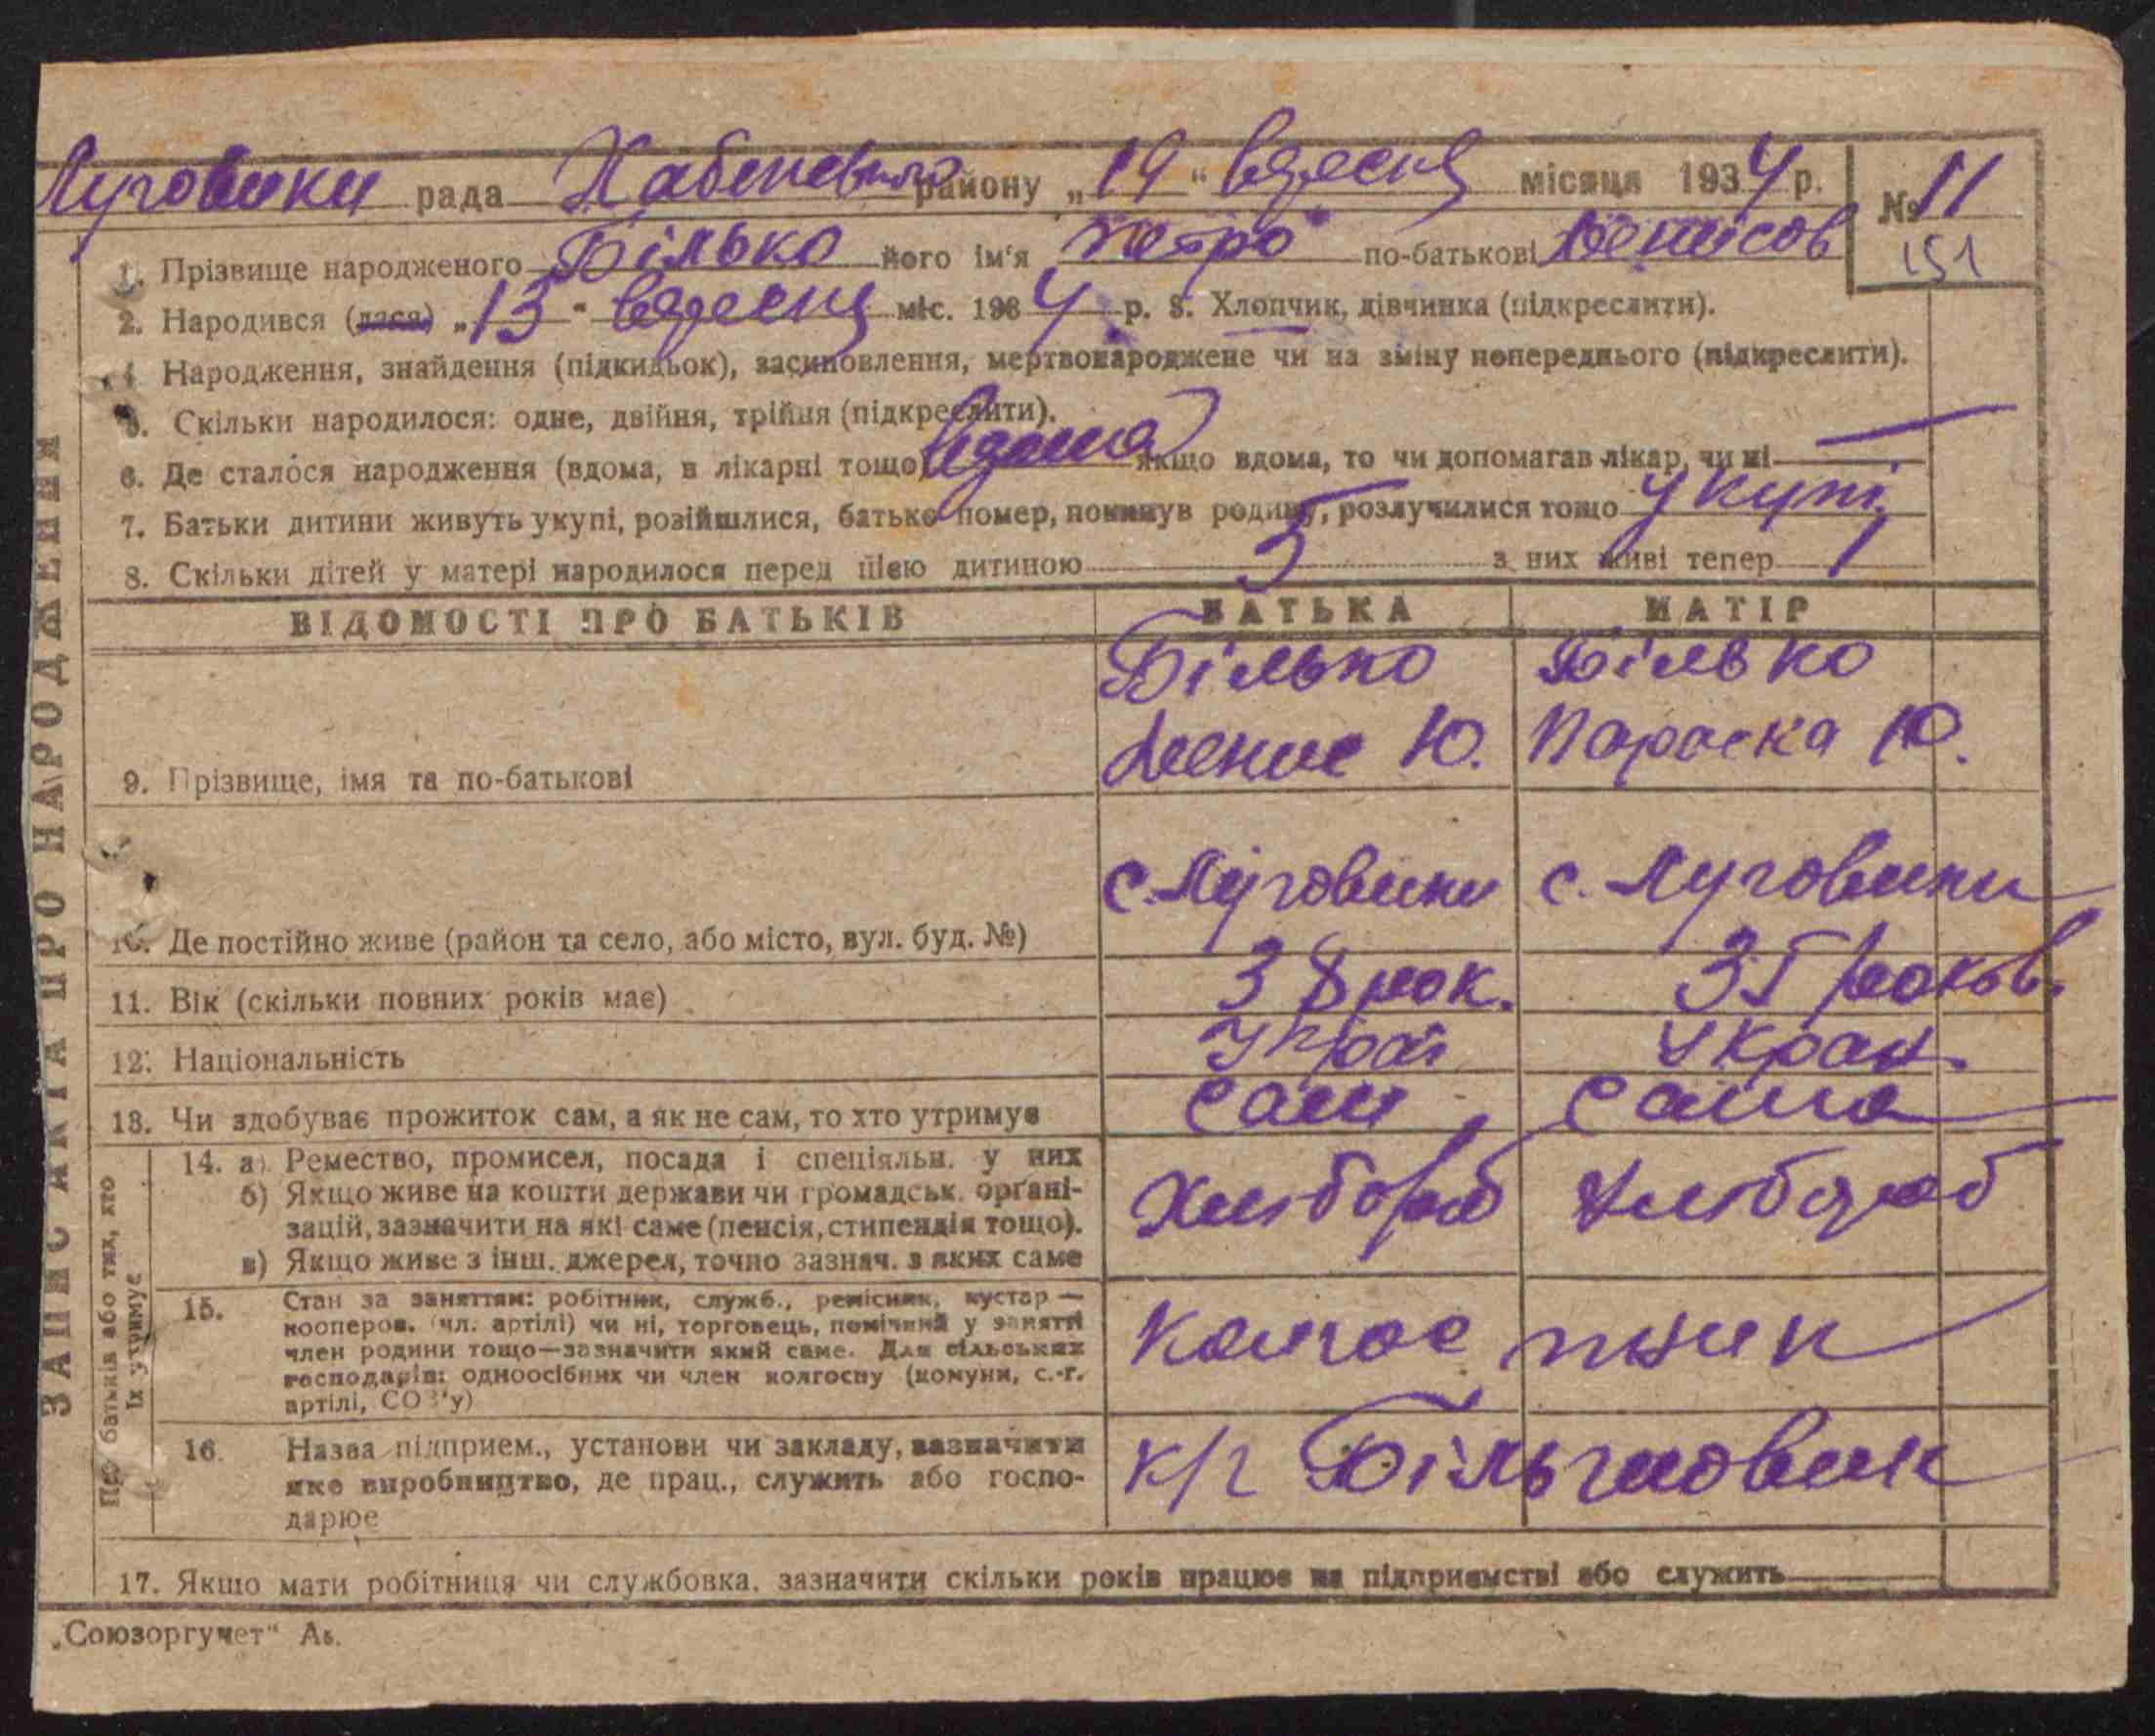 Луговики рада Хабенського району „19“ вересня місяця 1934 р. № 11
151
1. Прізвище народженого Білько його ім'я Петро по-батькові Денисов
2. Народився (лася) „13“ вересня міс. 1934 р. 3. Хлопчик, дівчинка (підкреслити).
4 Народження, знайдення (підкидьок), засиновлення, мертвонароджене чи на зміну попереднього (підкреслити).
5. Скільки народилося: одне, двійня, трійня (підкреслити).
6. Де сталося народження (вдома, в лікарні тощо) вдома якщо вдома, то чи допомагав лікар, чи ні —
7. Батьки дитини живуть укупі, розійшлися, батько помер, покинув родину, розлучилися тощо укупі
8. Скільки дітей у матері народилося перед цією дитиною 5 з них живі тепер 1
ВІДОМОСТІ ПРО БАТЬКІВ БАТЬКА МАТІР
9. Прізвище, імя та по-батькові Білько Денис Ю. Білько Параска Ю.
10. Де постійно живе (район та село, або місто, вул. буд. №) с. Луговики с. Луговики
11. Вік (скільки повних років має) 38 рок. 35 років.
12. Національність Украї Укран.
13. Чи здобуває прожиток сам, а як не сам, то хто утримує сам сама
14. а) Ремество, промисел, посада і спеціяльн. у них
б) Якщо живе на кошти держави чи громадськ. органі-
зацій, зазначити на які саме (пенсія, стипендія тощо).
в) Якщо живе з інш. джерел, точно зазнач. з яких саме
Хлібороб Хлібороб
15. Стан за заняттям: робітник, служб., ремісник, кустар —
кооперов. (чл. артілі) чи ні, торговець, помічний у занятті
член родини тощо—зазначити який саме. Для сільських
господарів: одноосібник чи член колгоспу (комуни, с.-г.
артілі, СОЗ'у)
Колгоспник
16. Назва підприєм., установи чи закладу, зазначити
яке виробництво, де прац., служить або госпо-
дарює
к/г Більшовик
17. Якщо мати робітниця чи службовка, зазначити скільки років працює на підприємстві або служить
Про батьків або тих, хто
їх утримує
ЗАПИС АКТА ПРО НАРОДЖЕННЯ
„Союзоргучет“